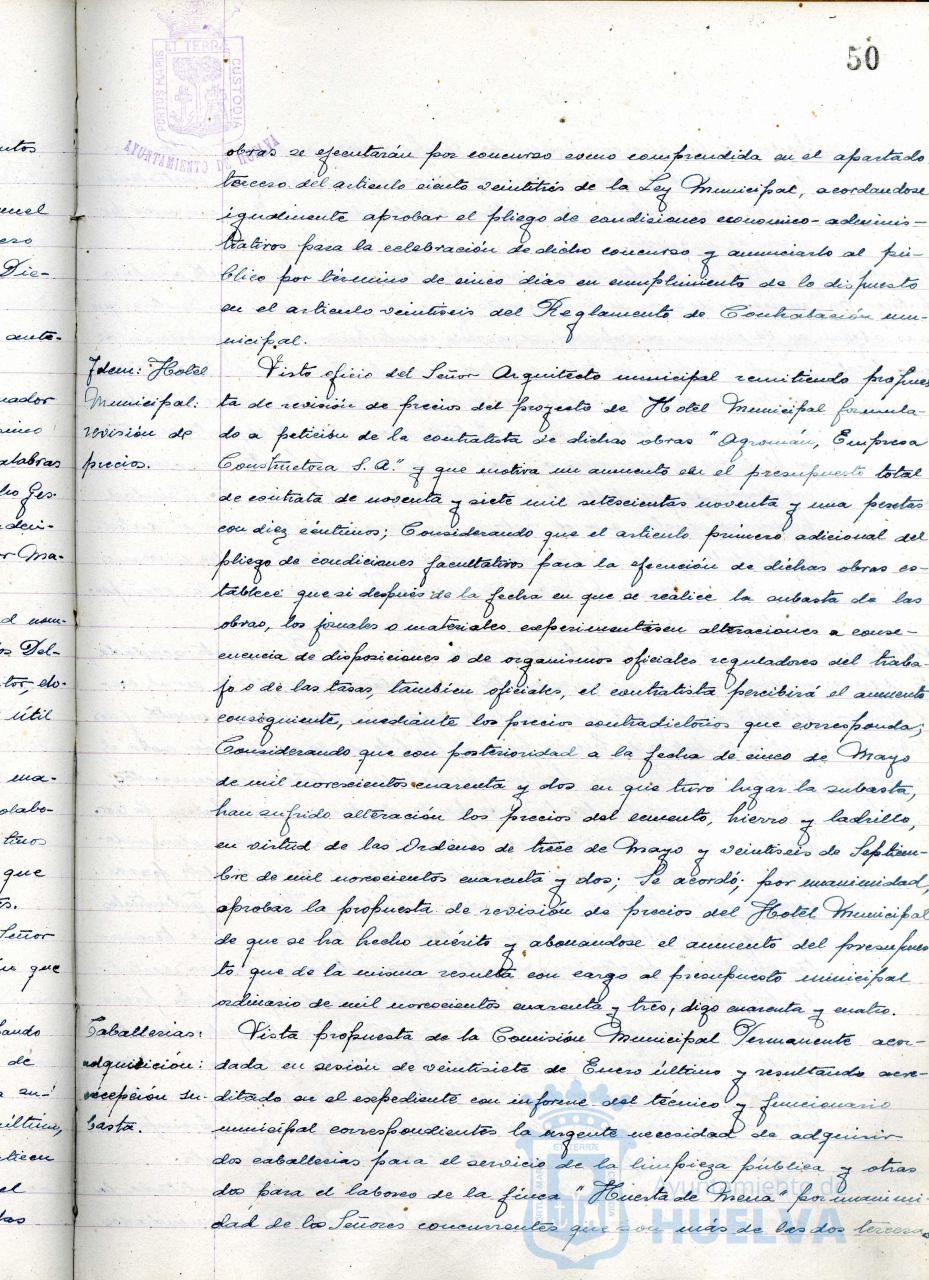 50
PORTUS MARIS ET TERRÆ CUSTODIA
AYUNTAMIENTO DE HUELVA
obras se ejecutarán por concurso como comprendida en el apartado
tercero del articulo ciento veintitrés de la Ley Municipal, acordandose
igualmente aprobar el pliego de condiciones economico-adminis-
trativos para la celebración de dicho concurso y anunciarlo al pú-
blico por término de cinco dias en cumplimiento de lo dispuesto
en el articulo veintiseis del Reglamento de Contratación mu-
nicipal.
Idem: Hotel
Municipal:
revisión de
precios.
Visto oficio del Señor Arquitecto municipal remitiendo propues
ta de revisión de precios del proyecto de Hotel Municipal formula-
do a petición de la contratista de dichas obras "Agromán, Empresa
Constructora S.A." y que motiva un aumento en el presupuesto total
de contrata de noventa y siete mil setescientas noventa y una pesetas
con diez céntimos; Considerando que el articulo primero adicional del
pliego de condiciones facultativos para la ejecución de dichas obras es-
tablece que si después de la fecha en que se realice la subasta de las
obras, los jornales o materiales experimentasen alteraciones a conse-
cuencia de disposiciones o de organismos oficiales reguladores del traba-
jo o de las tasas, tambien oficiales, el contratista percibirá el aumento
consiguiente, mediante los precios contradictorios que corresponda;
Considerando que con posterioridad a la fecha de cinco de Mayo
de mil novescientos cuarenta y dos en que tuvo lugar la subasta,
han sufrido alteración los precios del cemento, hierro y ladrillo,
en virtud de las Ordenes de trece de Mayo y veintiseis de Septiem-
bre de mil novecientos cuarenta y dos; Se acordó, por unanimidad,
aprobar la propuesta de revisión de precios del Hotel Municipal
de que se ha hecho mérito y abonandose el aumento del presupues
to que de la misma resulta con cargo al presupuesto municipal
ordinario de mil novescientos cuarenta y tres, digo cuarenta y cuatro.
Caballerias:
adquisición:
excepción su-
basta.
Vista propuesta de la Comisión Municipal Permanente acor-
dada en sesión de veintisiete de Enero último y resultando acre-
ditado en el expediente con informe del técnico y funcionario
municipal correspondientes la urgente necesidad de adquirir
dos caballerias para el servicio de la limpieza pública y otras
dos para el laboreo de la finca "Huerta de Mena" por unanimi-
dad de los Señores concurrentes que son más de las dos terceras
Ayuntamiento de
HUELVA